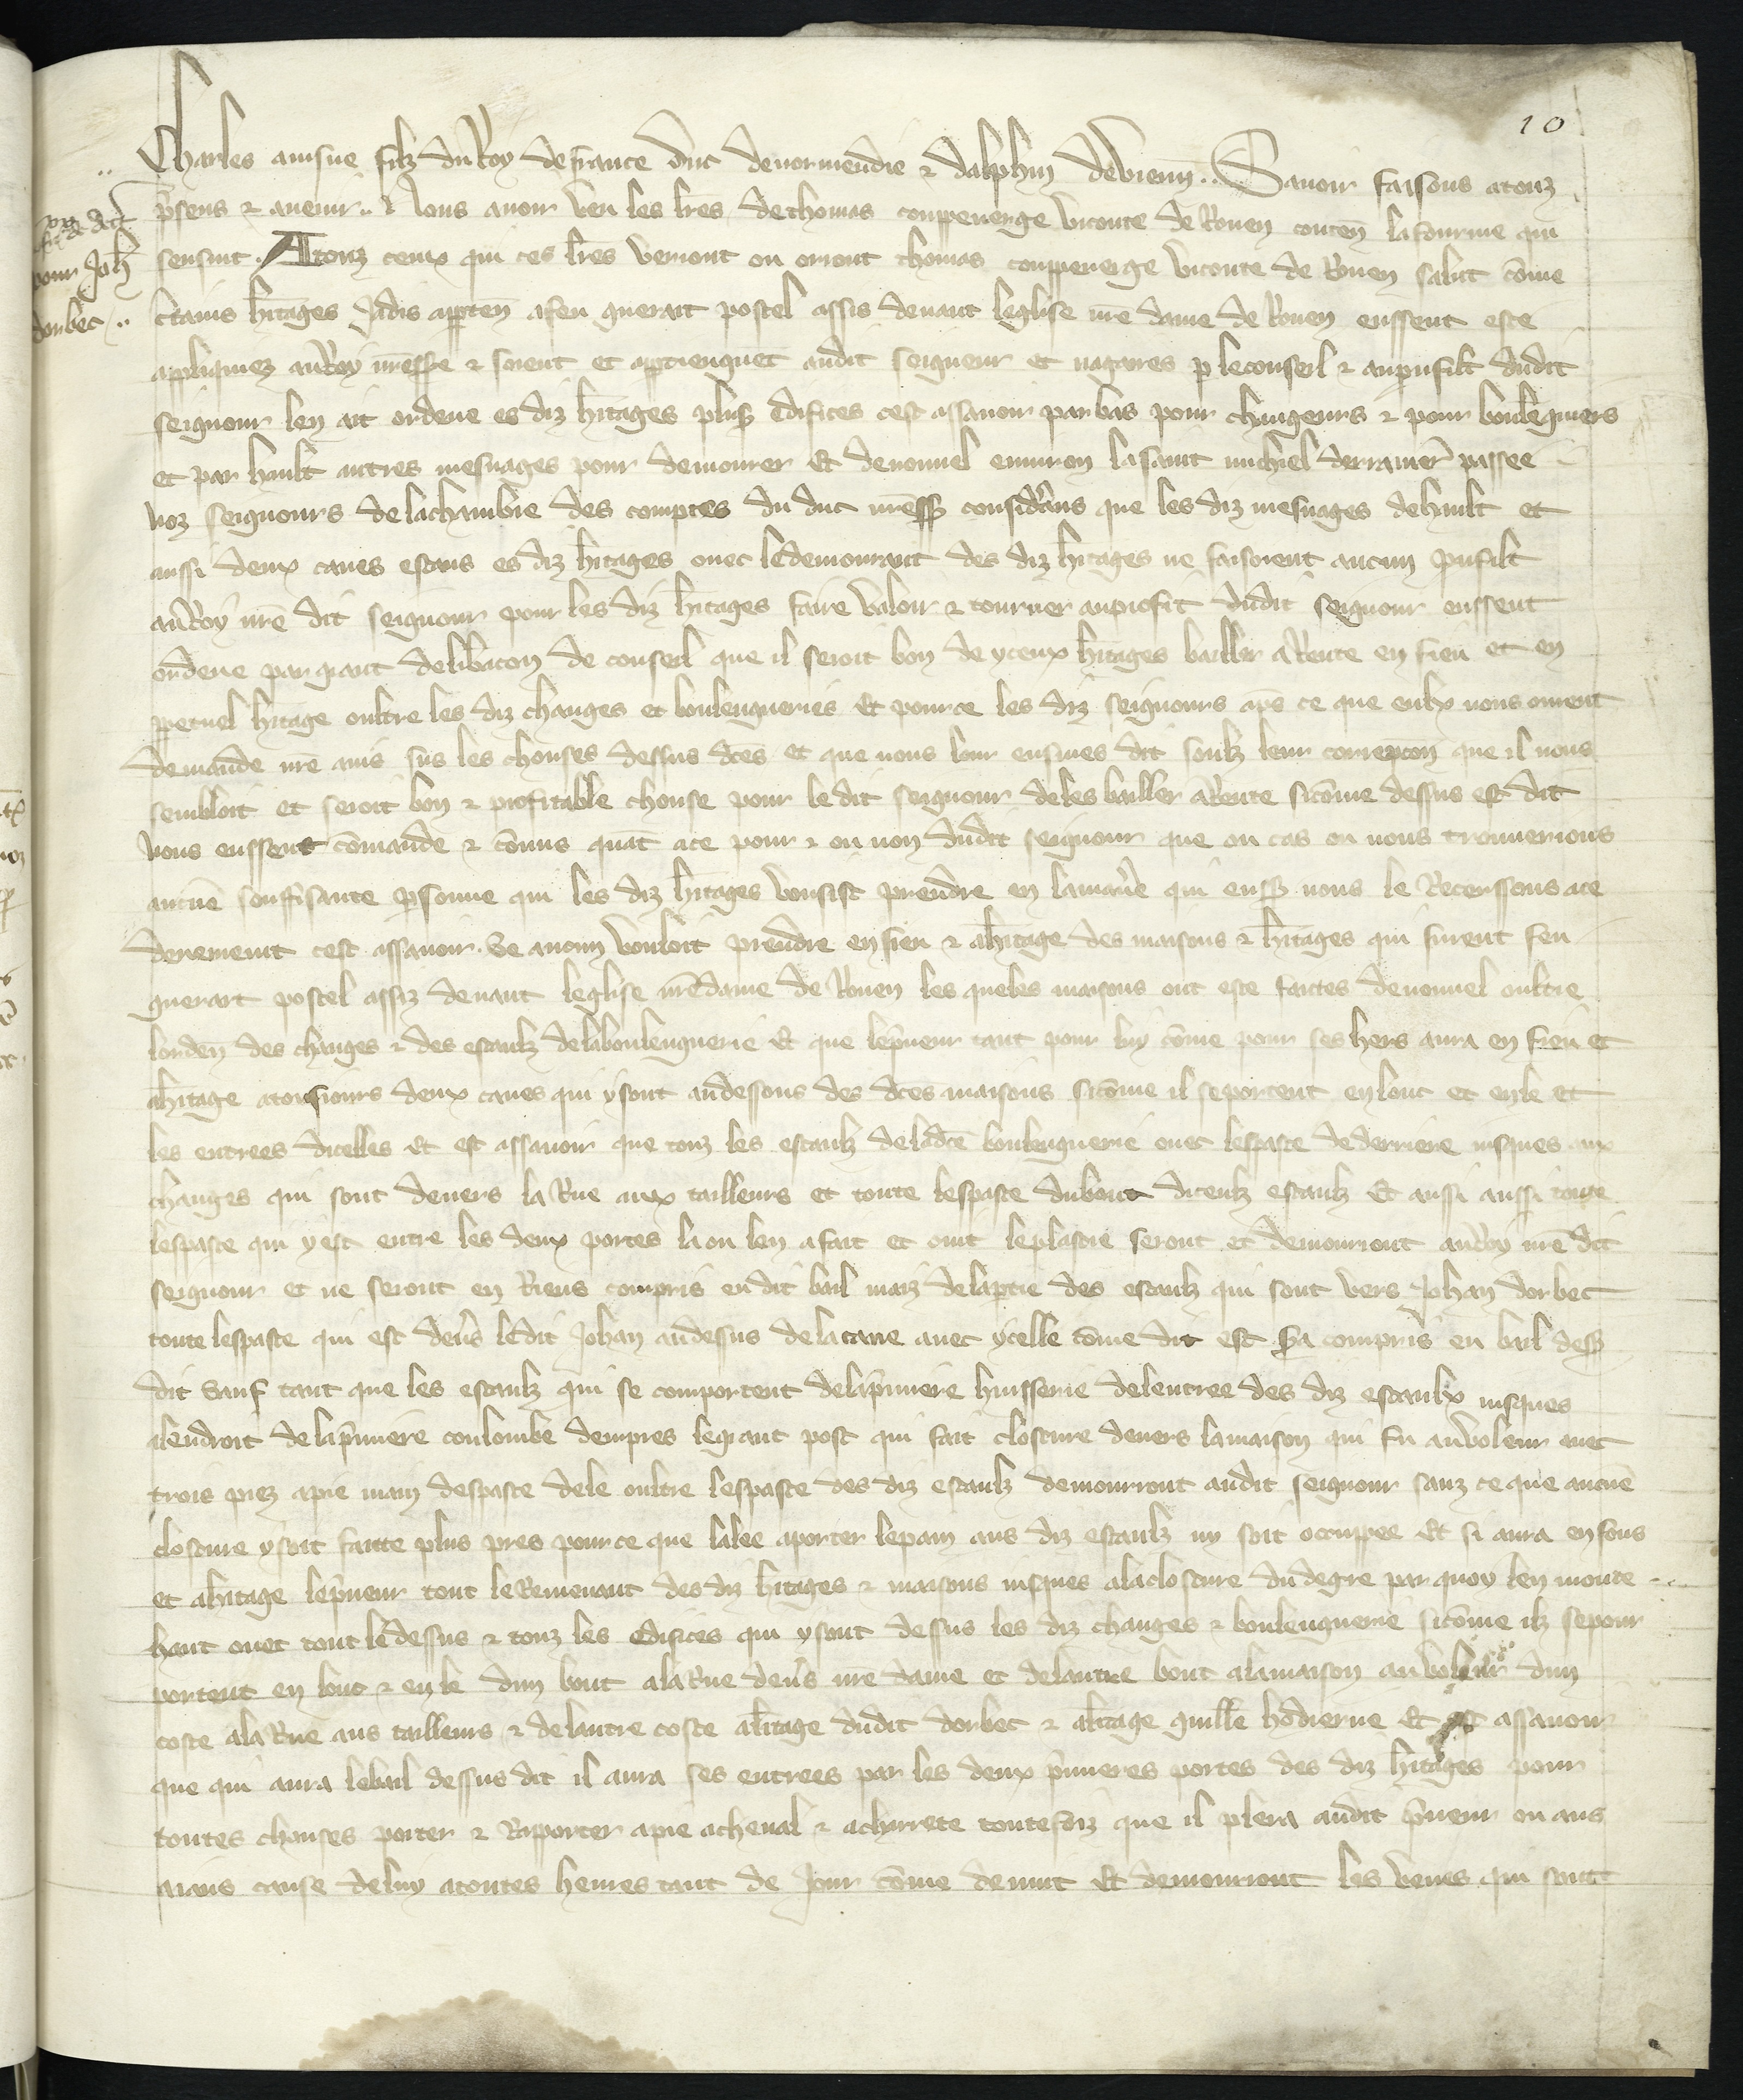 10
Charles ainsne filz du Roy de france duc de normendie & dalphin de vienn̄. Savoir faisons a touz
p̄sens & avenir. Nous avoir veu les lr̄es de thomas coupeverge viconte de Rouen conten̄ la fourme qui
sensuit. A touz ceulx qui ces lr̄es verront ou orront thomas coupeverge viconte de Rouen salut cōme
ctains hītages jadis apparten̄ a feu guerart postel assis devant leglise nrē dame de Rouen eussent este
apliquiez au Roy nrē sire & soient et aptienguēt audit seigneur et nagaires p le conseil & au prufilt dudit
seignour len ait ordene es diz hītages plus̄ edifices cest assavoir par bas pour changeurs & pour boulēguiers
et par hault autres mesnages pour demourer Et de nouvel environ la saint michiel derrainer̄ passee
noz seignours de la chambre des comptes du duc nrē s consid̄ans que les diz mesnages de hault et
aussi deux caves estans es diz hītages ovec le demourant des diz hītages ne faisoient aucun prufilt
au Roy nrē dit seignour pour les diz hītages faire valoir & tourner au profit dudit seignour eussent
ordene par grant delibacōn de conseil que il seroit bon de yceux hītages baillier a Rente en fieu et en
ppetuel hītage oultre les diz changes et boulengueries Et pour ce les diz seignours ap̄s ce que eulx nous orrent
demande nrē avis sus les chouses dessus dc̄es et que nous leur eusmes dit soulz leur correpcōn que il nous
sembloit et seroit bon & profitable chouse pour le dit seignour de les baillier a Rente sicōme dessus est dit
Nous eussent cōmande & cōmis quāt a ce pour & ou non dudit seignour que ou cas ou nous trouverions
aucūe souffisante psonne qui les diz hītages vousist prendre en la maniēre qui ens nous le Recenssons a ce
denement cest assavoir. Se aucun vouloit prendre en fieu & a hītage des maisons & hītages qui furent feu
guerart postel assiz devant leglise nrē dame de Rouen les queles maisons ont este faictes de nouvel oultre
lorden̄ des changes & des estaulz de la boulenguerie Et que le p̄neur tant pour luy cōme pour ses hers aura en fieu et
a hītage a tousiours deux caves qui y sont au dessous des dc̄es maisons sicōme il se portent en lonc et en le et
les entrees dicelles Et est assavoir que touz les estaulz de la dc̄e boulenguerie ovec lespasce de derriere iusques aux
changes qui sont devers la Rue aux tailleurs et toute lespasce du bout diceulz estaulz Et aussi aussi toute
lespasce qui y est entre les deux portes la ou len a fait et ouvr̄ le plastre seront et demourront au Roy nrē dit
seignour et ne seront en Riens compris en dit bail maiz de la ptie des estaulz qui sont vers Johan dorbec
toute lespasce qui est devs le dit Johan au dessus de la cave avec ycelle cōme dit est sa compris en bail dess
dit sauf tant que les estaulz qui se comportent de la p̄miere huisserie de lentree des diz estaulx iusques
a lendroit de la p̄miere coulombe dempres le grant post qui fait closture devers la maison qui fu au voleur avec
trois piez a pie main despasce de le oultre lespasce des diz estaulz demourront audit seignour sanz ce que aucūe
closture y soit faitte plus pres pour ce que lalee a porter le pain aus diz estaulz ny soit occupee Et si aura en fons
et a hītage le p̄neur tout le Remenant des diz hītages & maisons iusques a la closture du degre par quoy len monte
haut ovec tout le dessus & touz les edifices qui y sont dessus les diz changes & boulenguerie sicōme ilz se pour
portent en lonc & en le dun bout a la Rue devs nrē dame et de lautre bout a la maison au voleur dun
coste a la Rue aus tailleurs & de lautre coste a hītage dudit dorbec & a hītage guille hodierne Et est assavoir
que qui aura le bail dessus dit il aura ses entrees par les deux p̄mieres portes des diz hītages pour
toutes chouses porter & Raporter a pie a cheval & a charrete toutefoiz que il plera audit p̄neur ou aus
aians cause de luy a toutes heures tant de jour cōme de nuit Et demourront les veues qui sont
pour Joh̄
dorbec